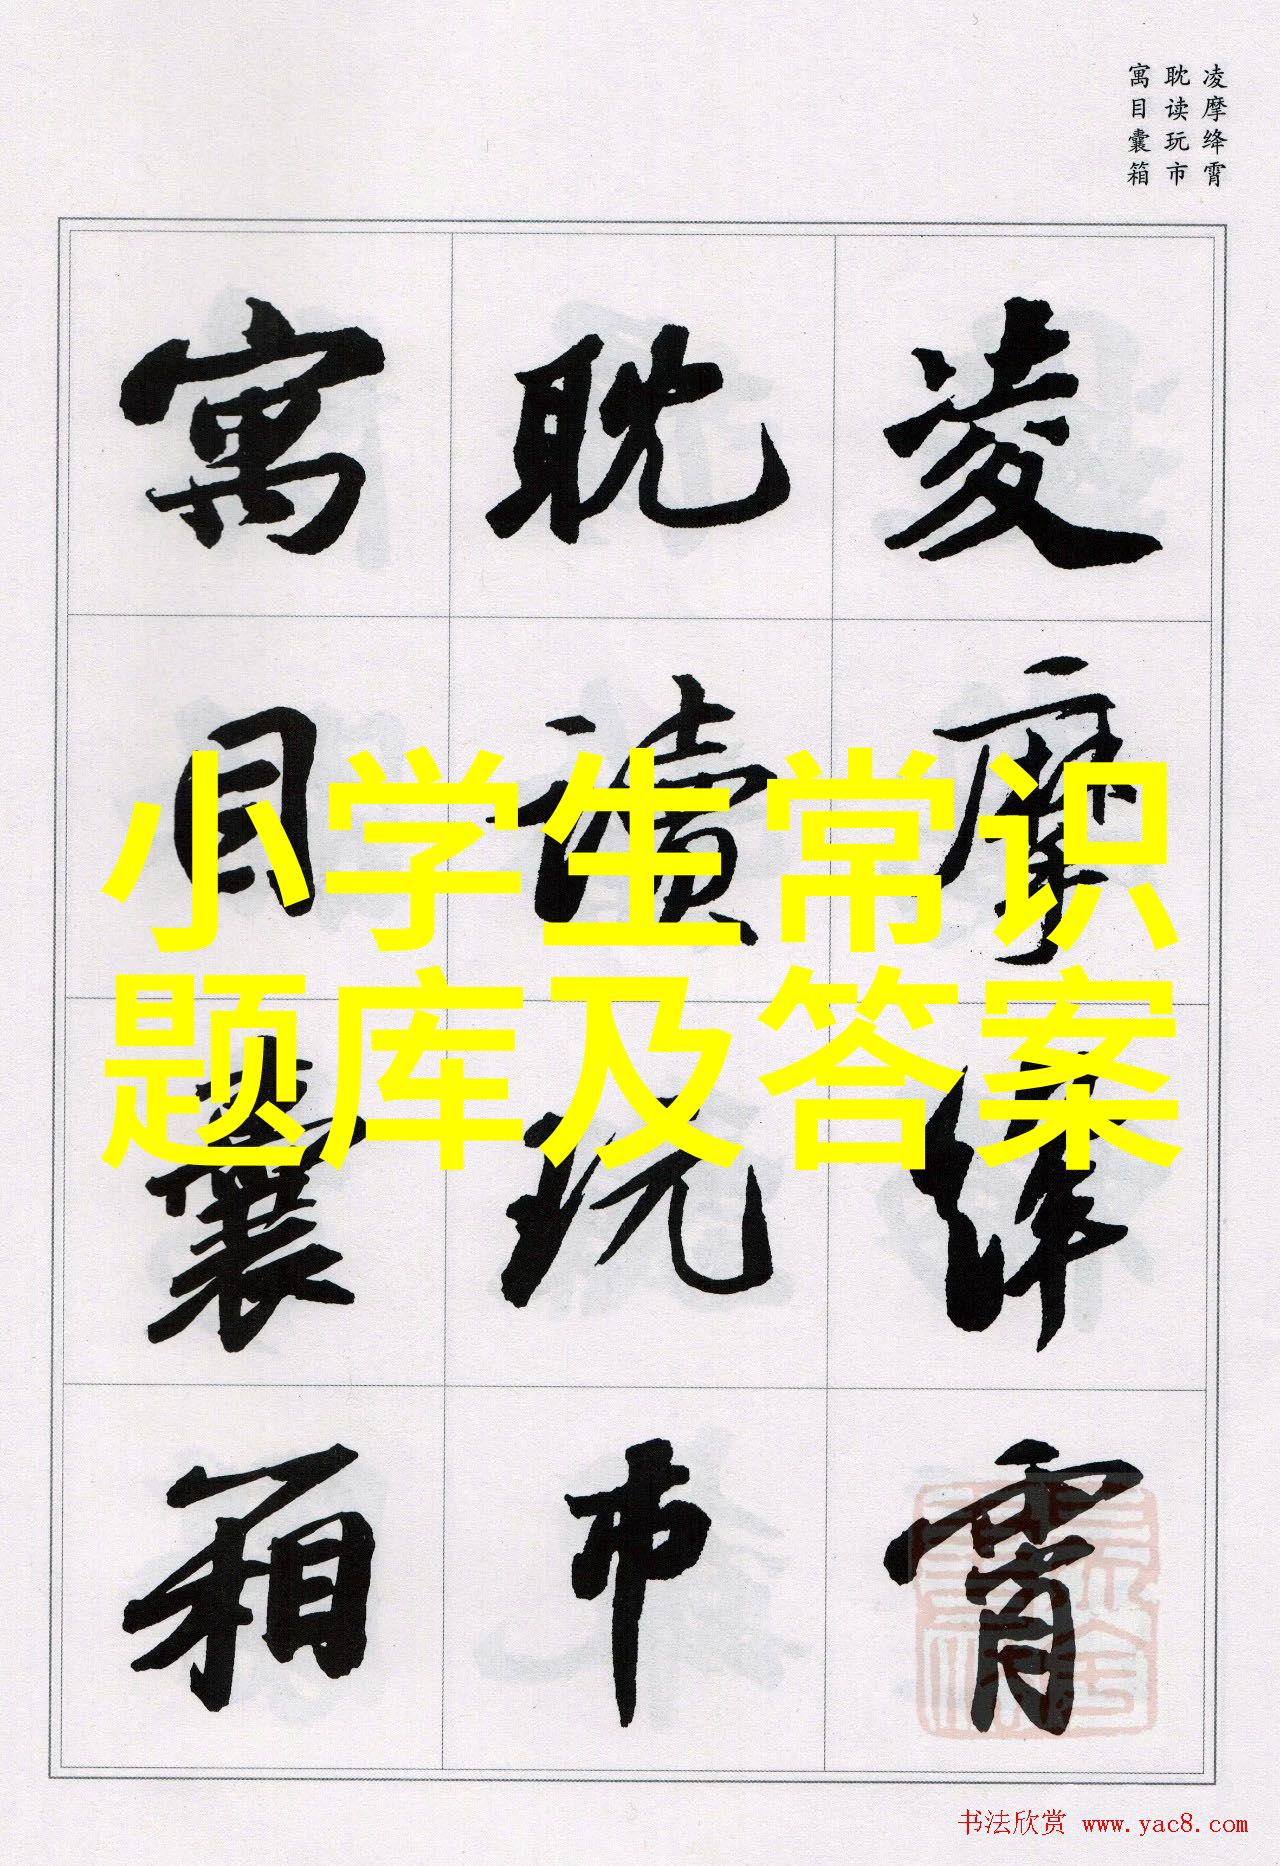 凌摩绛霄
耽读玩市
寓目囊箱
凌摩绛霄
耽读玩市
寓目囊箱
小学生常识
题库及答案
书法欣赏 www.yac8.com